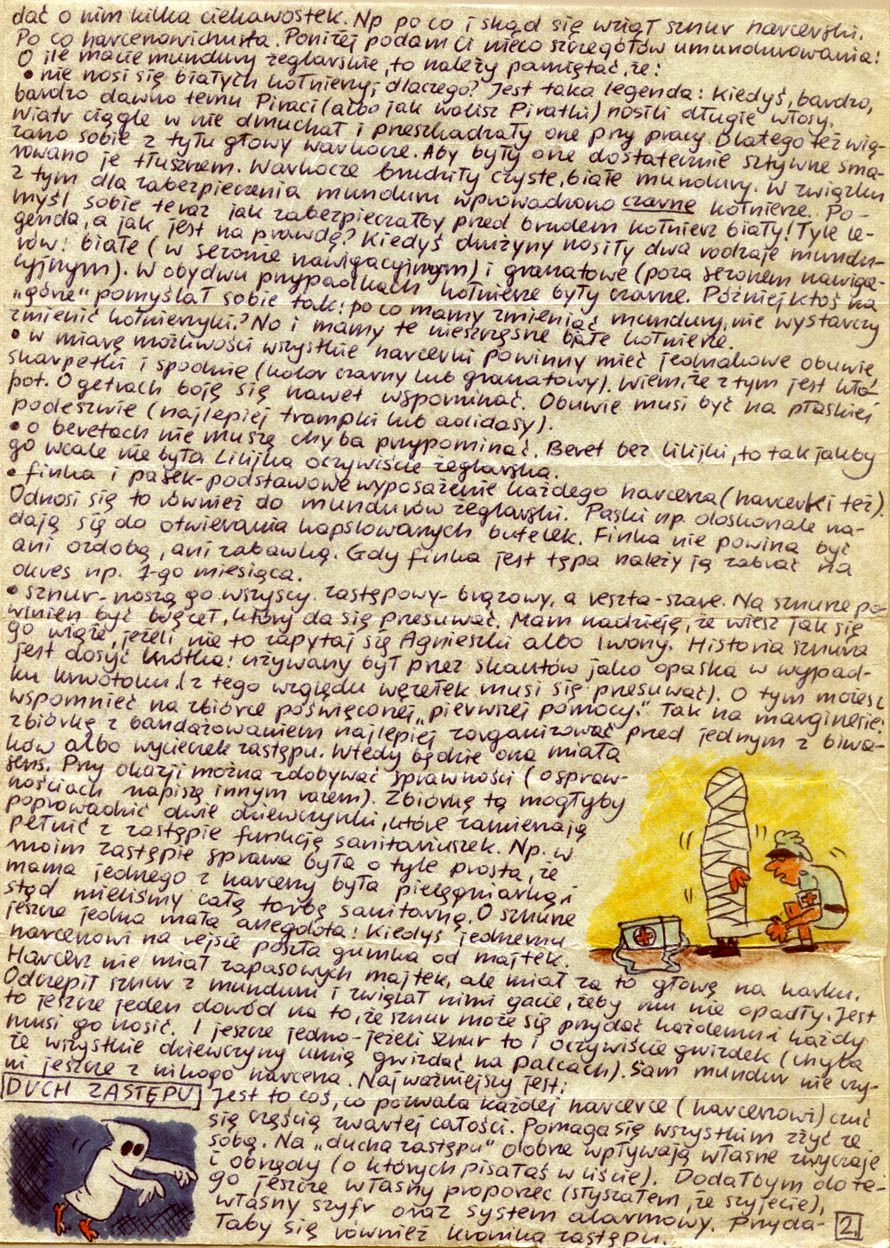 dać o nim kilka ciekawostek. Np po co i skąd się wziął sznur harcerski.
Po co harcerowi chusta. Poniżej podam Ci nieco szczegółów umundurowania:
O ile macie mundury żeglarskie, to należy pamiętać, że:
• nie nosi się białych kołnierzy; dlaczego? Jest taka legenda: Kiedyś, bardzo,
bardzo dawno temu Piraci (albo jak wolisz Piratki) nosili długie włosy.
Wiatr ciągle w nie dmuchał i przeszkadzały one przy pracy. Dlatego też wią-
zano sobie z tyłu głowy warkocze. Aby były one dostatecznie sztywne sma-
rowano je tłuszczem. Warkocze brudziły czyste, białe mundury. W związku
z tym dla zabezpieczenia munduru wprowadzono czarne kołnierze. Po-
myśl sobie teraz jak zabezpieczałby przed brudem kołnierz biały! Tyle le-
genda, a jak jest na prawdę? Kiedyś drużyny nosiły dwa rodzaje mundu-
rów: białe (w sezonie nawigacyjnym) i granatowe (poza sezonem nawiga-
cyjnym). W obydwu przypadkach kołnierze były czarne. Później ktoś na
„górze" pomyślał sobie tak: po co mamy zmieniać mundury, nie wystarczy
zmienić kołnierzyki? No i mamy te nieszczęsne białe kołnierze.
• w miarę możliwości wszystkie harcerki powinny mieć jednakowe obuwie
skarpetki i spodnie (kolor czarny lub granatowy). Wiem, że z tym jest kło-
pot. O getrach boję się nawet wspominać. Obuwie musi być na płaskiej
podeszwie (najlepiej trampki lub adidasy).
• o beretach nie muszę chyba przypominać. Beret bez lilijki, to tak jakby
go wcale nie było. Lilijka oczywiście żeglarska.
• finka i pasek - podstawowe wyposażenie każdego harcerza (harcerki też).
Odnosi się to również do mundurów żeglarski. Paski np. doskonale na-
dają się do otwierania kapslowanych butelek. Finka nie powina być
ani ozdobą, ani zabawką. Gdy finka jest tępa należy ją zabrać na
okres np. 1-go miesiąca.
• sznur - noszą go wszyscy. zastępowy - brązowy, a reszta - szare. Na sznurze po-
winien być węzeł, który da się przesuwać. Mam nadzieję, że wiesz jak się
go wiąże, jeżeli nie to zapytaj się Agnieszki albo Iwony. Historia sznura
jest dosyć krótka: używany był przez skautów jako opaska w wypad-
ku krwotoku. (z tego względu węzełek musi się przesuwać). O tym możesz
wspomnieć na zbiórce poświęconej „pierwszej pomocy." Tak na marginesie:
zbiórkę z bandażowaniem najlepiej zorganizować przed jednym z biwa-
ków albo wycieczek zastępu. Wtedy będzie ona miała
sens. Przy okazji można zdobywać sprawności (o spraw-
nościach napiszę innym razem). Zbiórkę tą mogłyby
poprowadzić dwie dziewczynki, które zamierzają
pełnić z zastępie funkcję sanitariuszek. Np. w
moim zastępie sprawa była o tyle prosta, że
mama jednego z harcerzy była pielęgniarką i
stąd mieliśmy całą torbę sanitarną. O sznurze
jeszcze jedna mała anegdota: Kiedyś jednemu
harcerzowi na rejsie poszła gumka od majtek.
Harcerz nie miał zapasowych majtek, ale miał za to głowę na karku.
Odczepił sznur z munduru i związał nimi gacie, żeby mu nie opadły. Jest
to jeszcze jeden dowód na to, że sznur może się przydać każdemu i każdy
musi go nosić. I jeszcze jedno - jeżeli sznur to i oczywiście gwizdek (chyba
że wszystkie dziewczyny umią gwizdać na palcach). Sam mundur nie czy-
ni jeszcze z nikogo harcerza. Najważniejszy jest:
DUCH ZASTĘPU Jest to coś, co pozwala każdej harcerce (harcerzowi) czuć
się częścią zwartej całości. Pomaga się wszystkim zżyć ze
sobą. Na „ducha zastępu" dobrze wpływają własne zwyczaje
i obrzędy (o których pisałaś w liście). Dodałbym do te-
go jeszcze własny proporzec (słyszałem, że szyjecie),
własny szyfr oraz system alarmowy. Przyda-
łaby się również kronika zastępu.
2